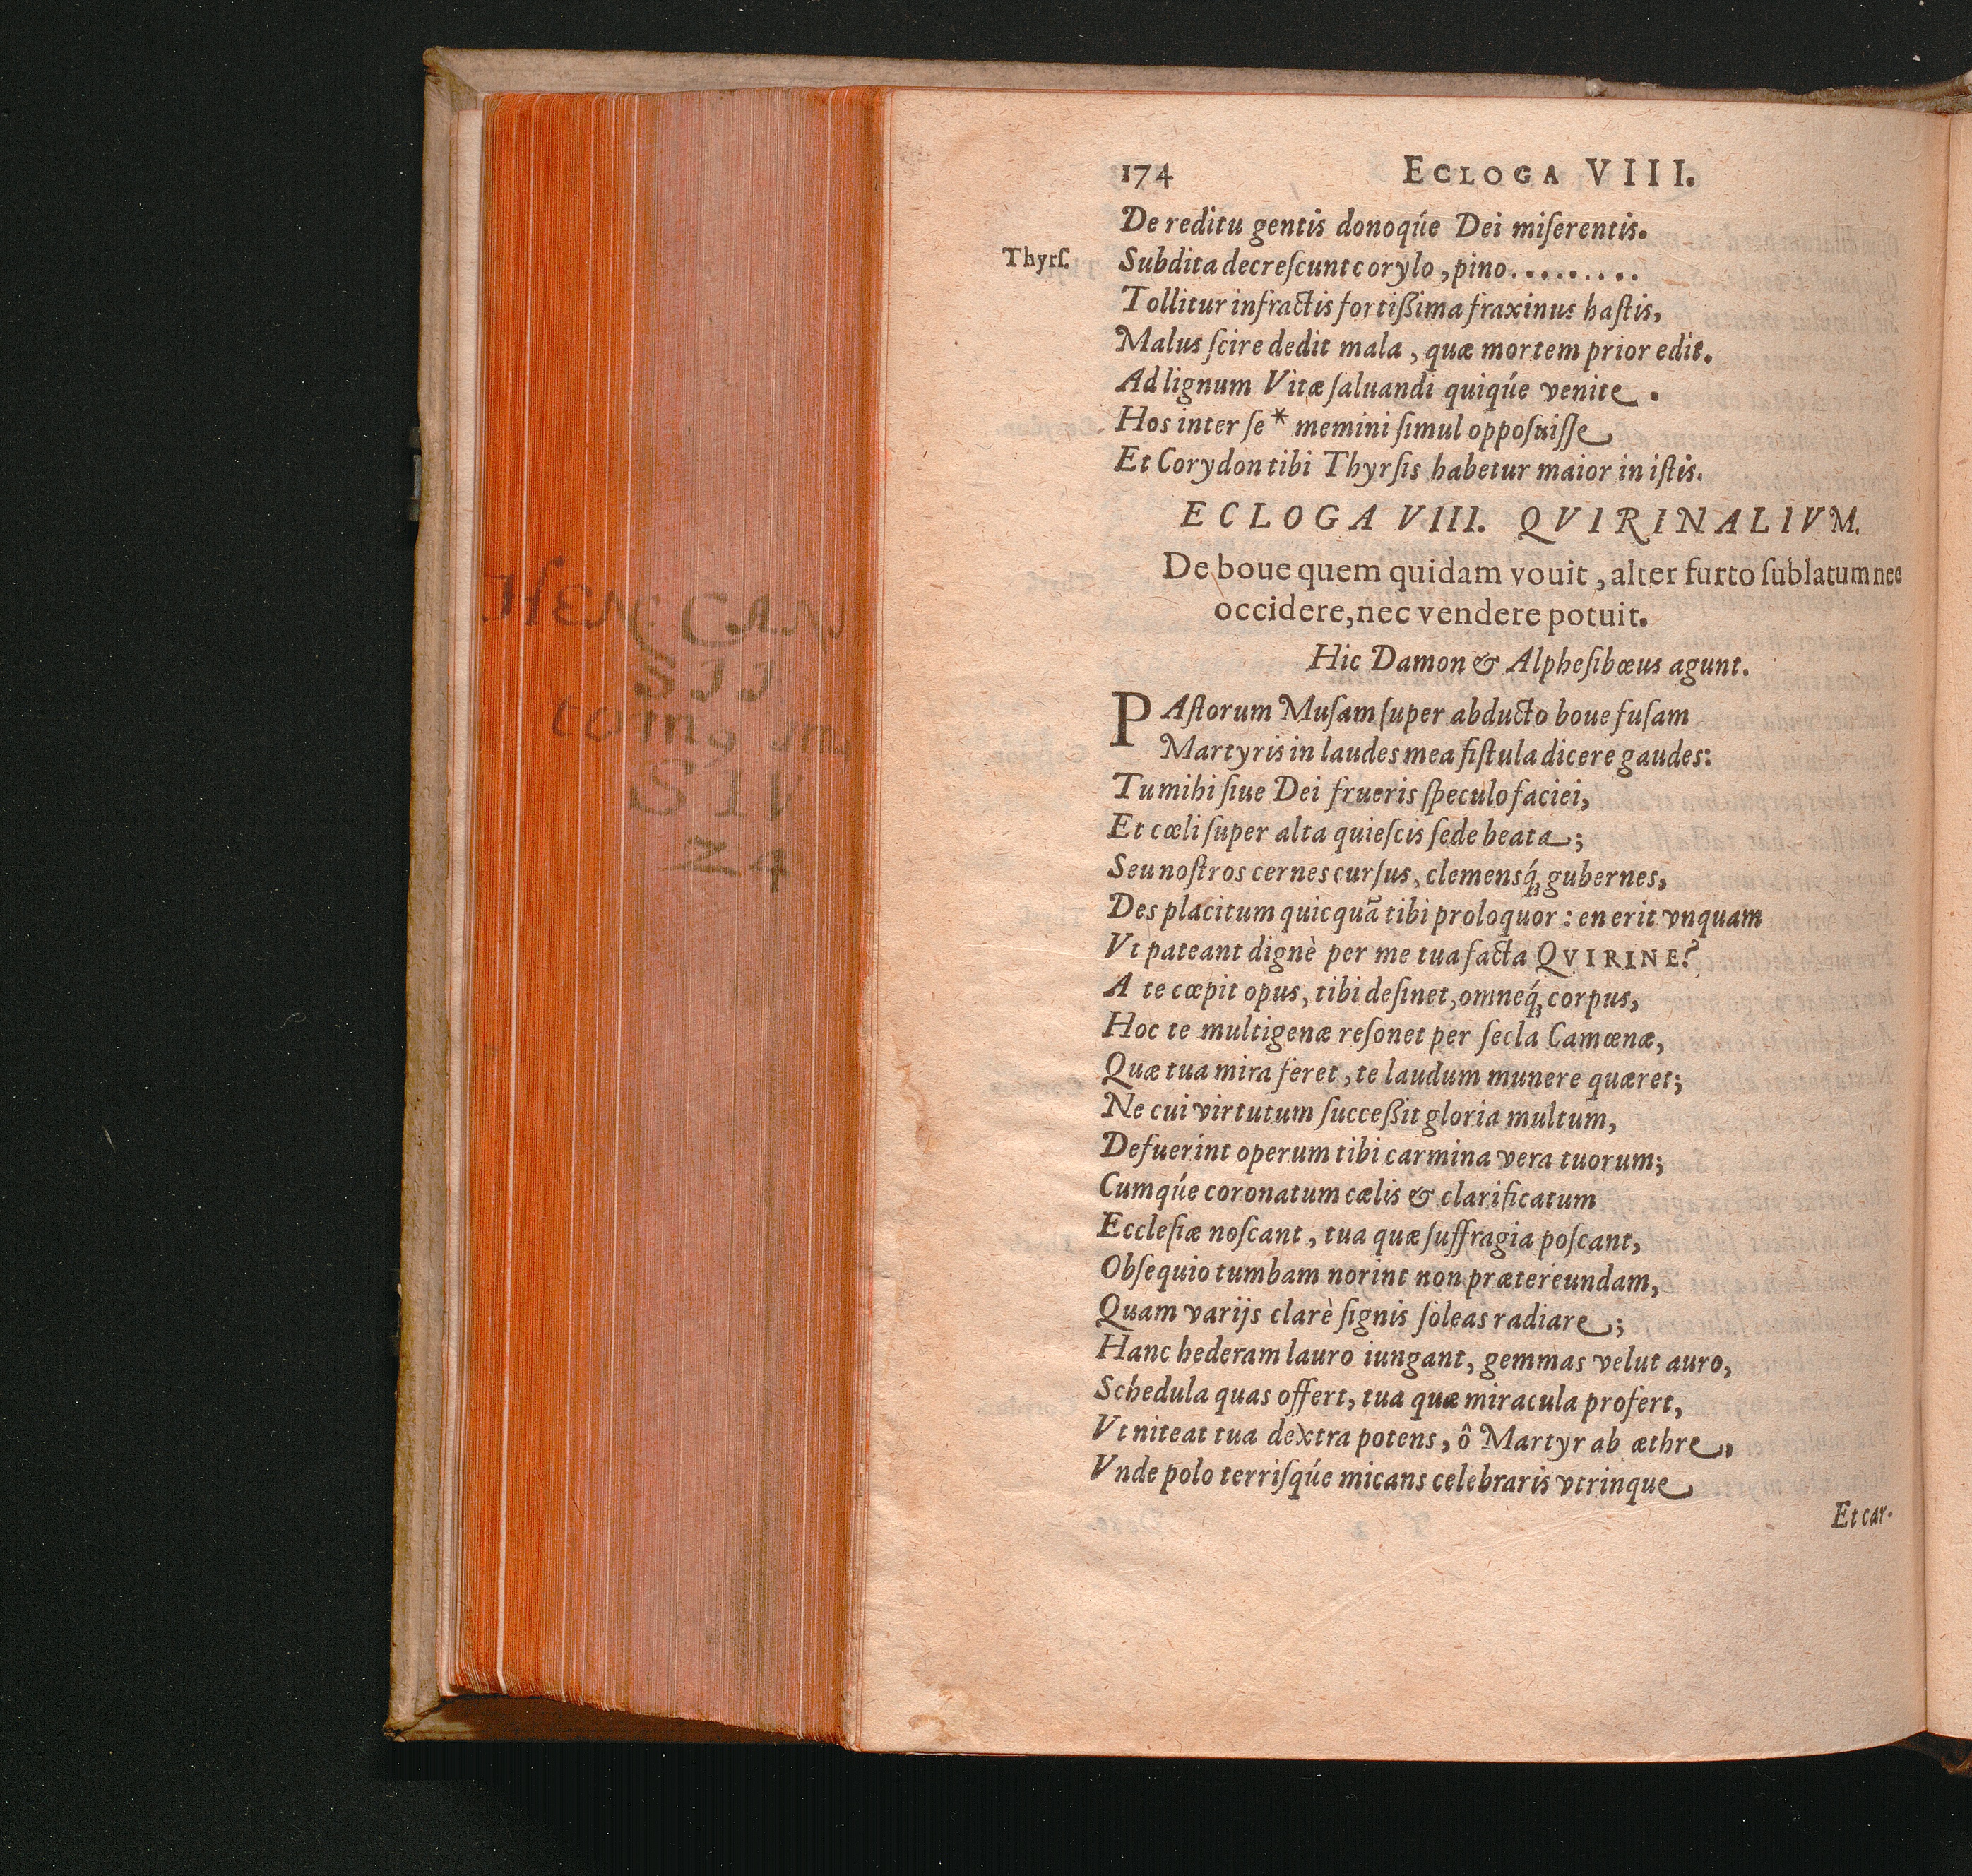 HEN: CAN
SII
tom, im,
S II
24
174 ECLOGA VIII.
De reditu gentis donoqúe Dei miſerentis.
Thyrſ. Subdita decreſcunt corylo, pino.........
Tollitur infractis fortißima fraxinus haſtis,
Malus ſcire dedit mala, quæ mortem prior edit.
Ad lignum Vitæ ſaluandi quiqúe venite.
Hos inter ſe * memini ſimul oppoſuiſſe
Et Corydon tibi Thyrſis habetur maior in iſtis.
ECLOGA VIII. QVIRINALIVM.
De boue quem quidam vouit, alter furto ſublatum nec
occidere, nec vendere potuit.
Hic Damon & Alpheſibœus agunt.
PAſtorum Muſam ſuper abducto boue fuſam
Martyris in laudes mea fiſtula dicere gaudes:
Tu mihi ſiue Dei frueris ſpeculo faciei,
Et cœli ſuper alta quieſcis ſede beata;
Seu noſtros cernes curſus, clemensq́ꝫ gubernes,
Des placitum quicquã tibi proloquor: en erit vnquam
Vt pateant dignè per me tua facta QVIRINE?
A te cœpit opus, tibi deſinet, omneq́ꝫ corpus,
Hoc te multigenæ reſonet per ſecla Camœnæ,
Quæ tua mira feret, te laudum munere quæret;
Ne cui virtutum ſucceßit gloria multum,
Defuerint operum tibi carmina vera tuorum;
Cumqúe coronatum cælis & clarificatum
Eccleſiæ noſcant, tua quæ ſuffragia poſcant,
Obſequio tumbam norint non prætereundam,
Quam varijs clarè ſignis ſoleas radiare;
Hanc hederam lauro iungant, gemmas velut auro,
Schedula quas offert, tua quæ miracula profert,
Vt niteat tua dextra potens, ô Martyr ab æthre,
Vnde polo terriſqúe micans celebraris vtrinque
Et car-